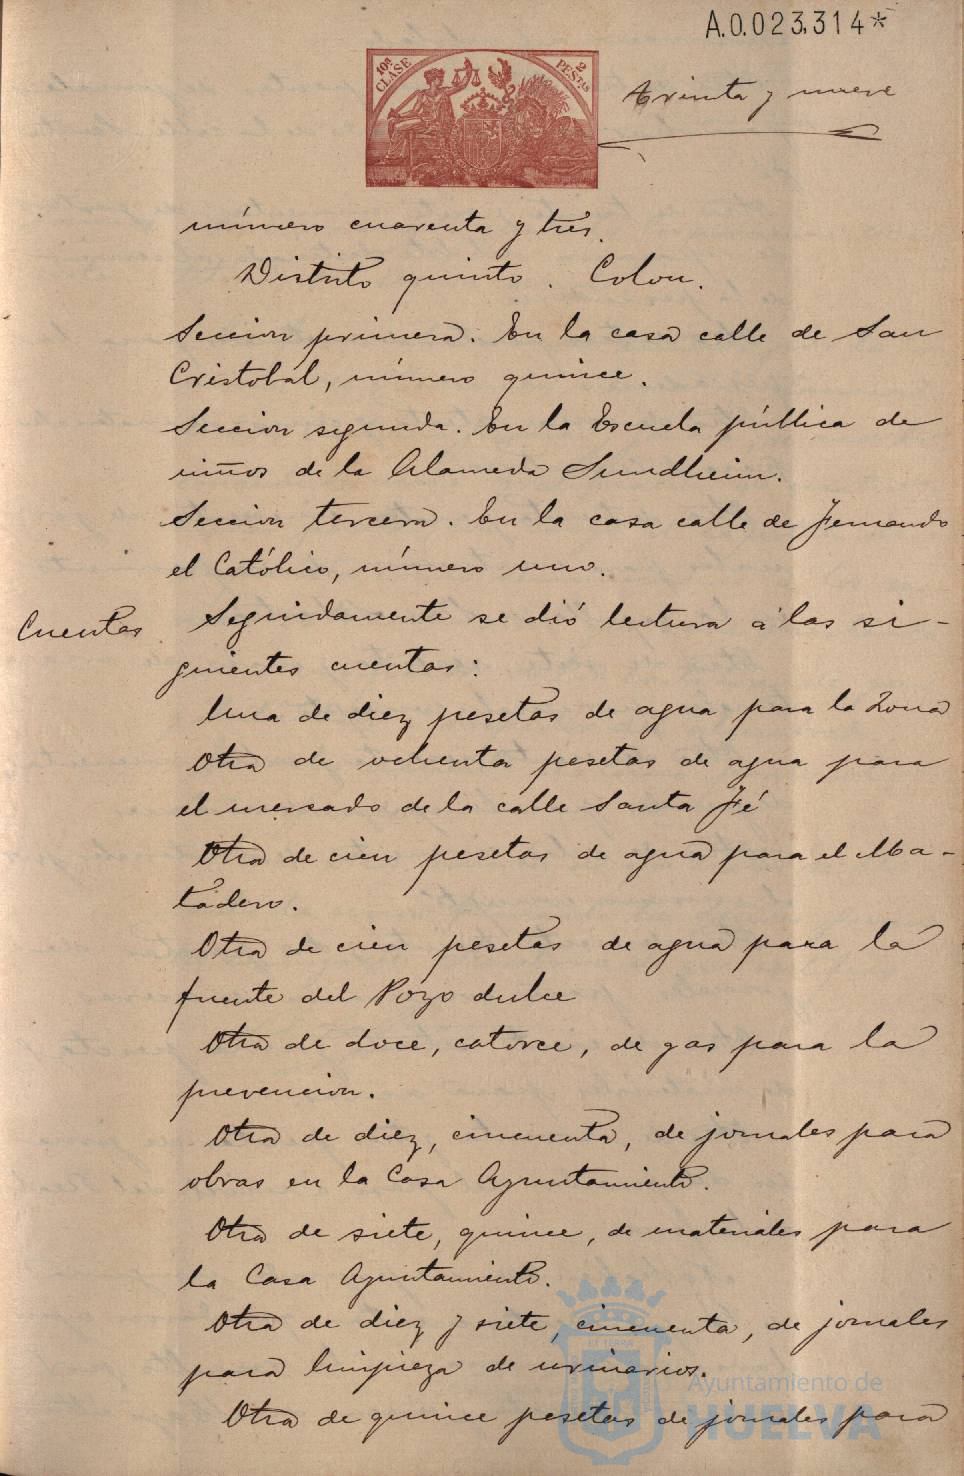 A.0.023.314*
10ª CLASE
2 PESTAS
Trinta y nueve
número cuarenta y tres.
Distrito quinto. Colon.
Seccion primera. En la casa calle de San
Cristobal, número quince.
Seccion segunda. En la Escuela pública de
niños de la Alameda Sundheim.
Seccion tercera. En la casa calle de Fernando
el Católico, número uno.
Cuentas
Seguidamente se dió lectura á las si-
guientes cuentas:
Una de diez pesetas de agua para la Zona
Otra de ochenta pesetas de agua para
el mercado de la calle Santa Fé
Otra de cien pesetas de agua para el Ma-
tadero.
Otra de cien pesetas de agua para la
fuente del Pozo dulce
Otra de doce, catorce, de gas para la
prevencion.
Otra de diez, cincuenta, de jornales para
obras en la Casa Ayuntamiento.
Otra de siete, quince, de materiales para
la Casa Ayuntamiento.
Otra de diez y siete, cincuenta, de jornales
para limpieza de urinarios.
Otra de quince pesetas de jornales para
Ayuntamiento de
HUELVA